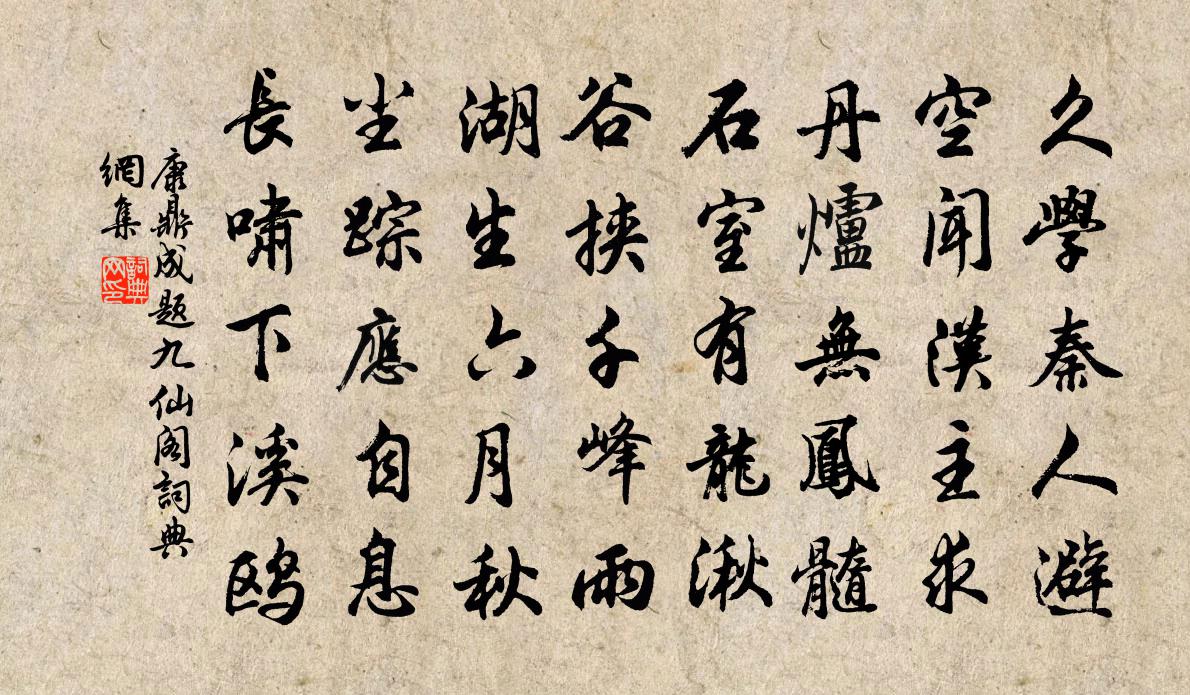 久學秦人避
空聞漢主求
丹爐無鳳髓
石室有龍湫
谷挾千峰雨
湖生六月秋
坐踪應自息
長嘯下溪鸥
康鼎成题九仙阁詞典
網集
詞典
网印